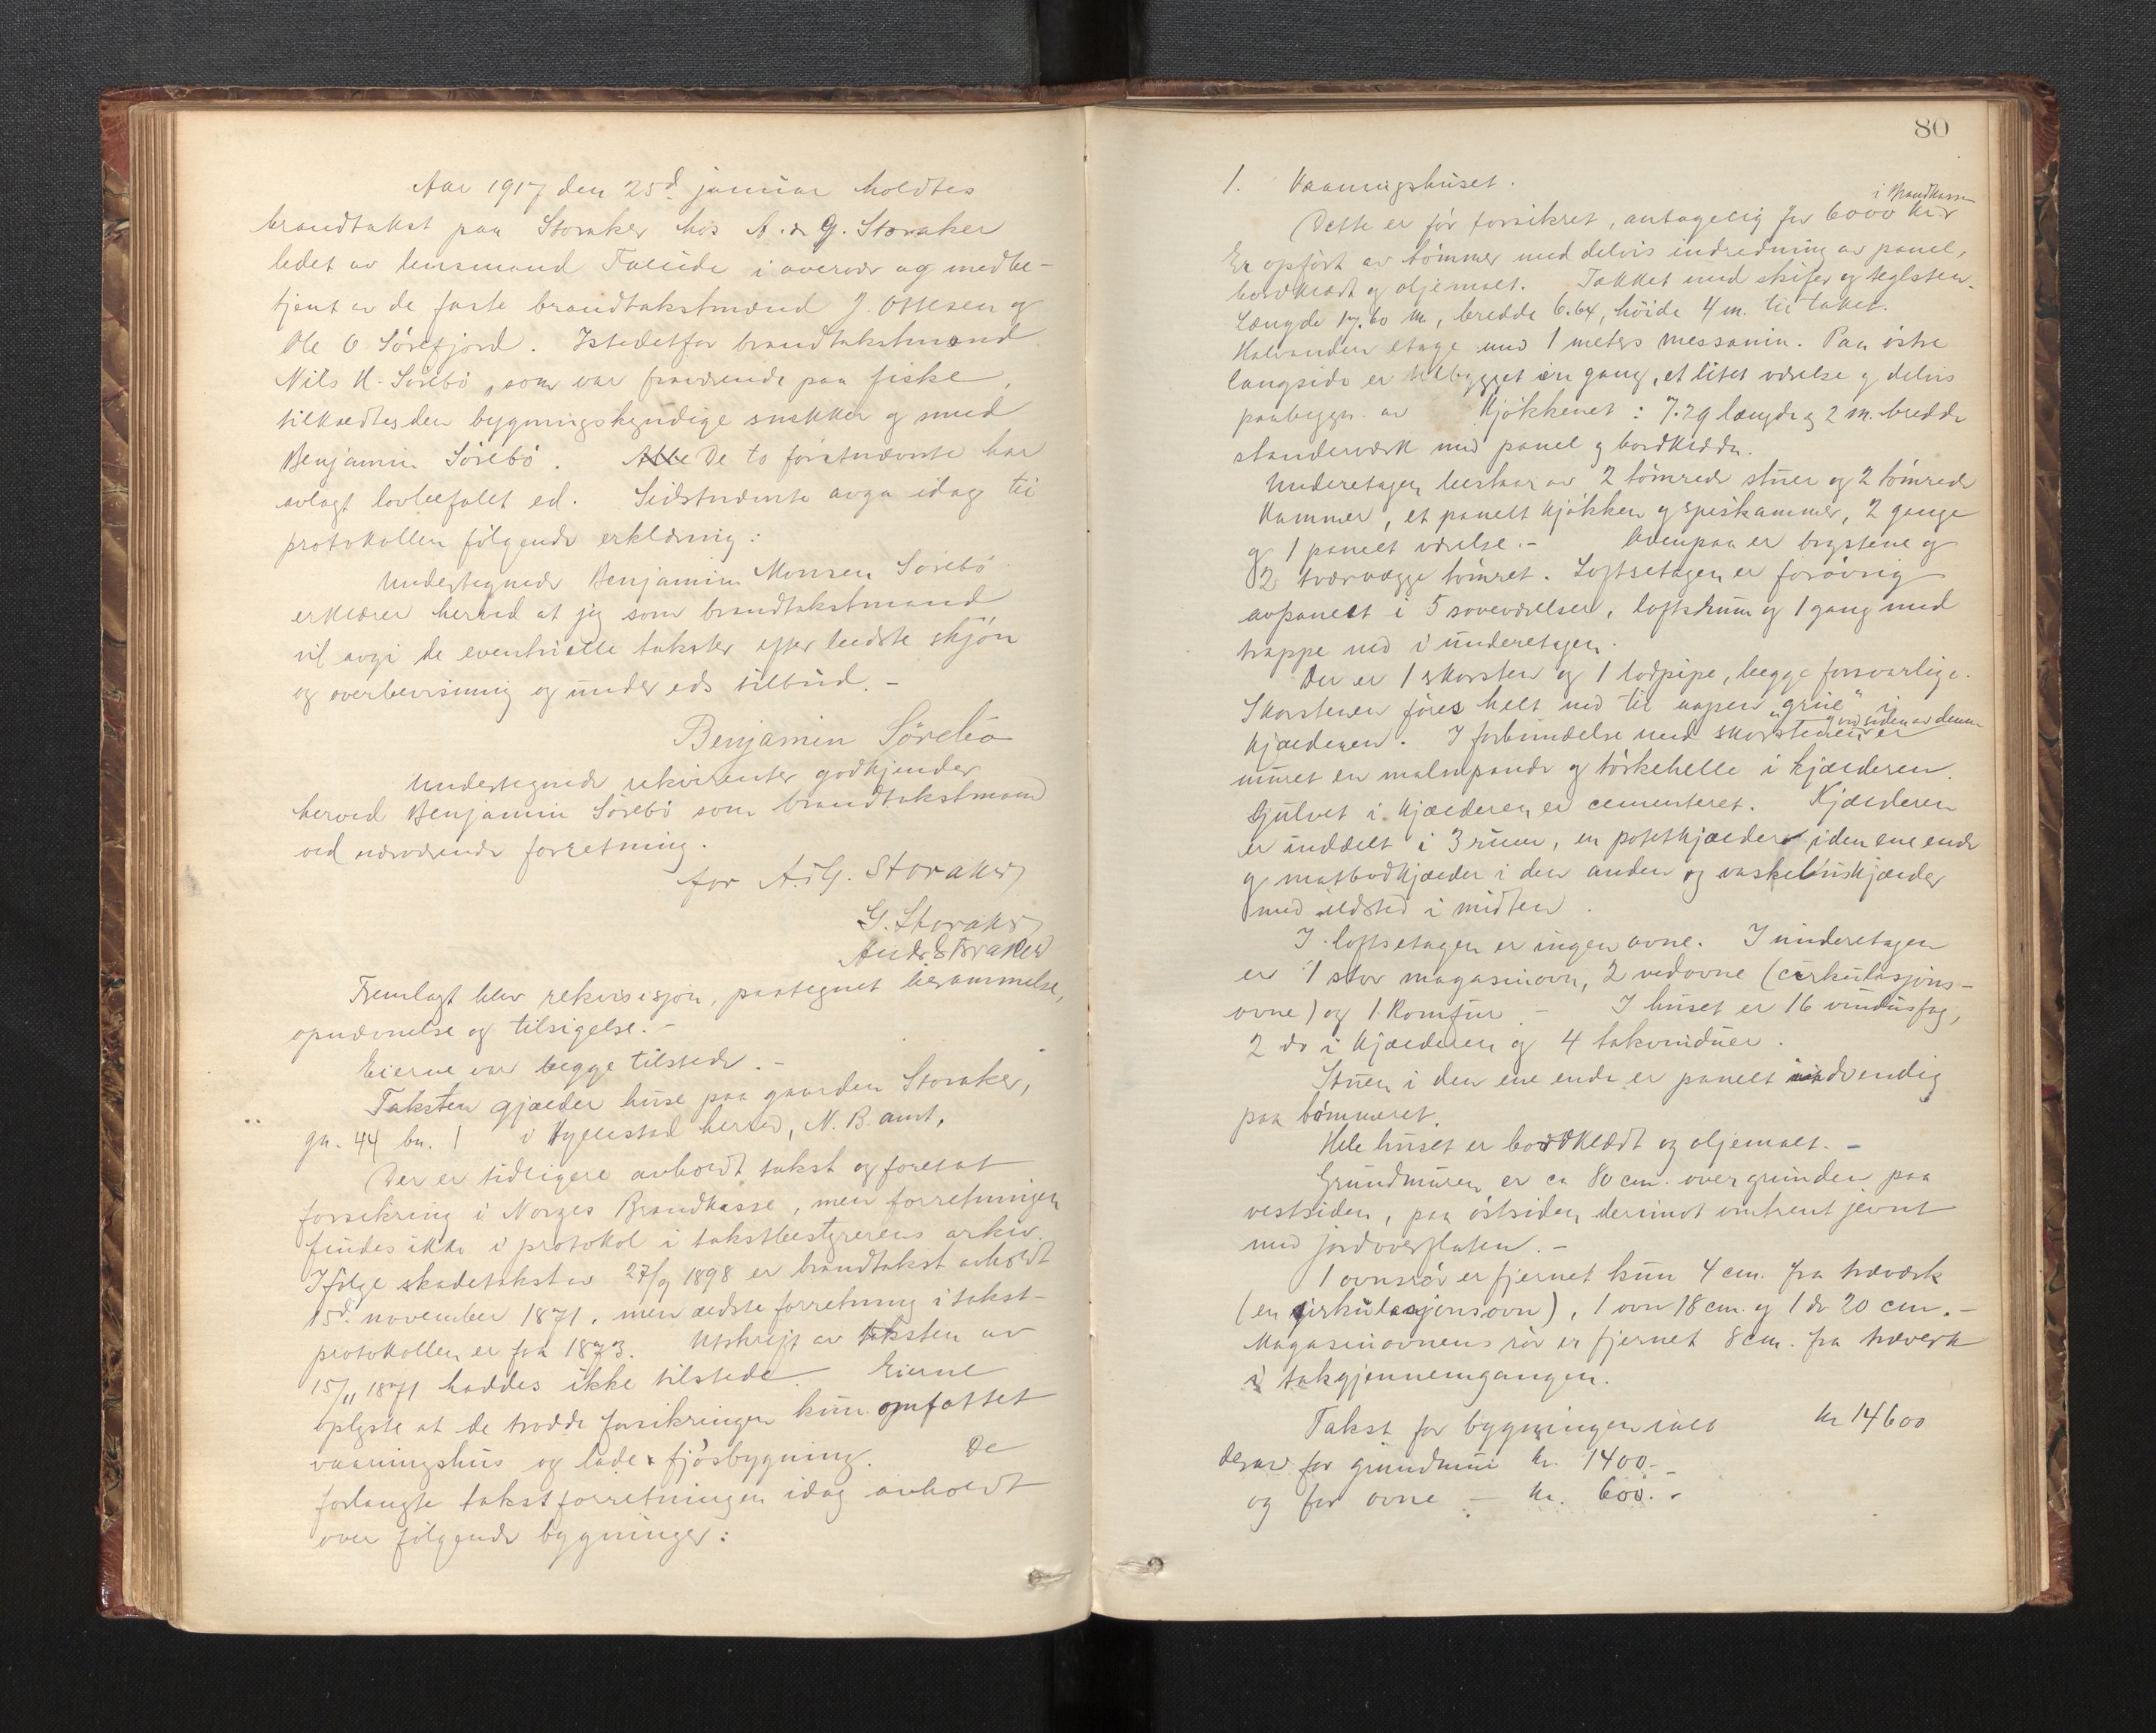 Aar 1917 den 25d. januar holdtes
brandtakst paa Storaker hos A. & G. Storaker
ledet av lensmand i overvær og medbe-
tjent av de faste brandtakstmænd J. Ottesen og
Ole O Sörefjord. Istedetfor brandtakstmand
Nils H. Sörebö, som var fraværende paa fiske,
tilkaldtes den bygningskyndige snekker og smed
Benjamin Sörebö. Alle De to förstnævnte har
avlagt lovbefalet ed. Sidstnævnte avga idag til
protokollen fölgende erklæring:
Undertegnede Benjamin Monsen Sörebö
erklærer herved at jeg som brandtakstmand
vil avgi de eventuelle takster efter bedste skjön
og overbevisning og under eds tilbud. -
Benjamin Sörebö
Undertegnede rekvirenter godkjender
herved Benjamin Sörebö som brandtakstmand
ved nærværende forretning.
for A. & G. Storaker
G. Storaker
Andr Storaker
Fremlagt blev rekvisisjon, paategnet berammelse,
opnævnelse og tilsigelse. -
Eierne var begge tilstede. -
Taksten gjælder huse paa gaarden Storaker,
gn. 44 bn. 1 i Hyllestad herred, N. B. amt.
Der er tidligere avholdt takst og foretat
forsikring i Norges Brandkasse, men forretningen
findes ikke i protokol i takstbestyrerens arkiv.
Ifölge skadetakst av 27/9 1898 er brandtakst avholdt
15d. november 1871, men ældste forretning i takst-
protokollen er fra 1873. Utskrift av taksten av
15/11 1871 haddes ikke tilstede. Eierne
oplyste at de trodde forsikringen kun omfattet
vaaningshus og lade & fjösbygning. De
forlangte takstforretningen idag avholdt
over fölgende bygninger:
80
1. Vaaningshuset.
i Brandkassen
Dette er för forsikret, antagelig for 6000 kr
Er opfört av tömmer med delvis indredning av panel,
bordklædt og oljemalt. Takket med skifer og teglsten.
Længde 17.60 m, bredde 6.64, höide 4 m. til taket.
Halvanden etage med 1 meters messanin. Paa östre
langside er utbygget en gang, et litet værelse og delvis
paabygn. av Kjökkenet: 7.29 længde og 2 m. bredde
standerværk med panel og bordklædd.
Underetagen bestaar av 2 tömrede stuer og 2 tömrede
Kammer, et panelt kjökken og spiskammer, 2 gange
og 1 panelt værelse. - Ovenpaa er brystene og
2 tværvægge tömret. Loftsetagen er forövrig
avpanelt i 5 soveværelser, loftsrum og 1 gang med
trappe ned i underetagen.
Der er 1 skorsten og 1 lodpipe, begge forsvarlige.
Skorstenen föres helt ned til aapen "grue" i
og ved siden av denne
kjælderen. I forbindelse med skorstenen er
muret en malmpande og törkehelle i kjælderen.
Gulvet i kjælderen er cementeret. Kjælderen
er inddelt i 3 rum, en potetkjælder i den ene ende
og matbodkjælder i den anden og vaskehuskjælder
med ildsted i midten.
I loftsetagen er ingen ovne. I underetagen
er 1 stor magasinovn, 2 vedovne (cirkulasjons-
ovne) og 1 Komfur. - I huset er 16 vindusfag,
2 do i kjælderen og 4 takvinduer.
Stuen i den ene ende er panelt indvendig
paa tömmeret.
Hele huset er bordklædt og oljemalt. -
Grundmuren er ca 80 cm. over grunden paa
vestsiden, paa östsiden derimot omtrent jevnt
med jordoverflaten. -
1 ovnsrör er fjernet kun 4 cm. fra træverk
(en cirkulasjonsovn), 1 ovn 18 cm. og 1 do 20 cm. -
Magasinovnens rör er fjernet 8 cm. fra træverk
i takgjennemgangen.
Takst for bygningen ialt kr 14600
derav for grundmur kr. 1400.-
og for ovne - kr. 600.-